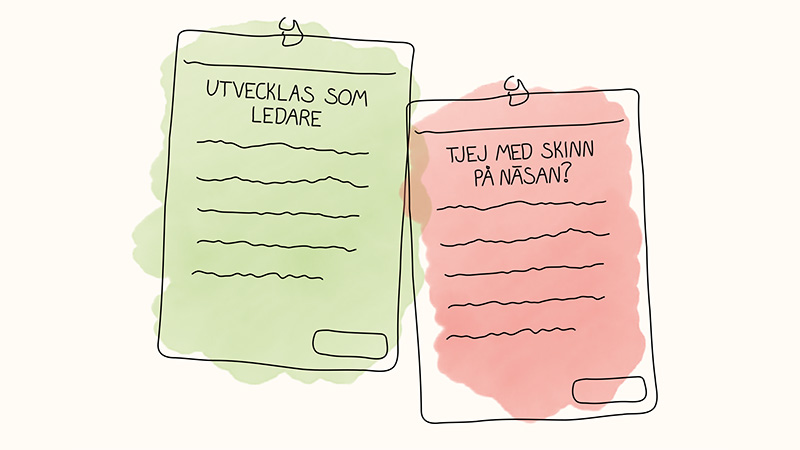 UTVECKLAS SOM
LEDARE
TJEJ MED SKINN
PÅ NÄSAN?